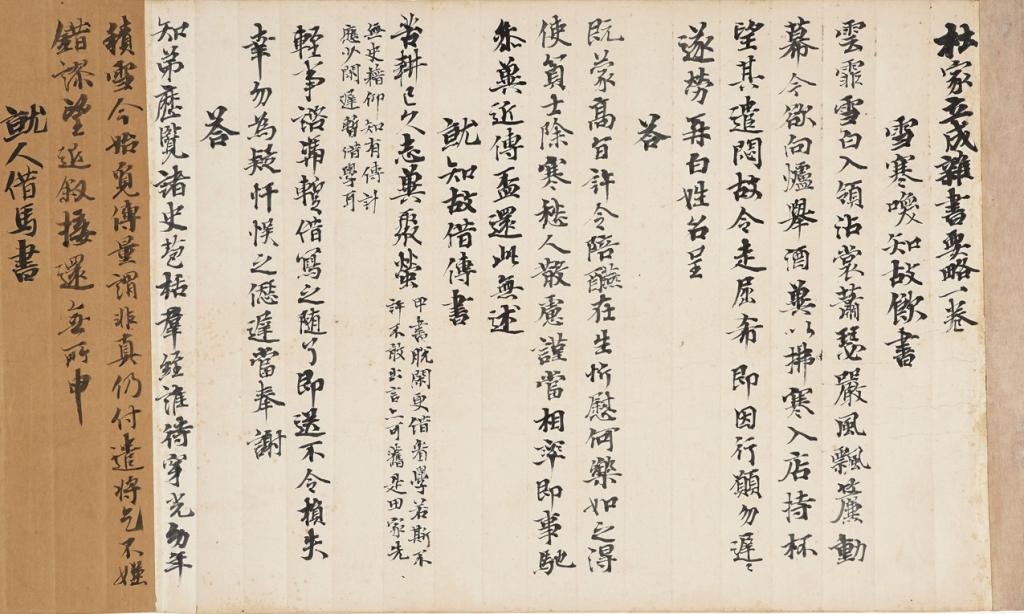 杜家立成雜書要略一卷
雪寒喚知故飲書
雲霏雪白入領沾裳蕭瑟嚴風飄簾動
幕今欲向爐舉酒冀以拂寒入店持杯
望其遣悶故令走屈希即因行願勿遲々
遂勞再白姓名呈
答
既蒙高旨許令陪讌在生忻慰何樂如之得
使貧士除寒愁人散慮謹當相率即事馳
參冀近傳盃還此無述
就知故借傳書
苦耕已久志冀聚螢
甲書脫閑更借學若斯不
許不敢出言亦可舊是田家先
無史籍仰知有傳計
應少閑遲暫借學耳
輕事諮歸暫借寫之随了即送不令損失
幸勿為疑忓悞之僁遲當奉謝
答
知弟歷覽諸史苞括羣經誰待穿光勿年
積雪今始覓傳量謂非真仍付遣將乞不嫌
錯謬望近叙接還無所申
就人借馬書